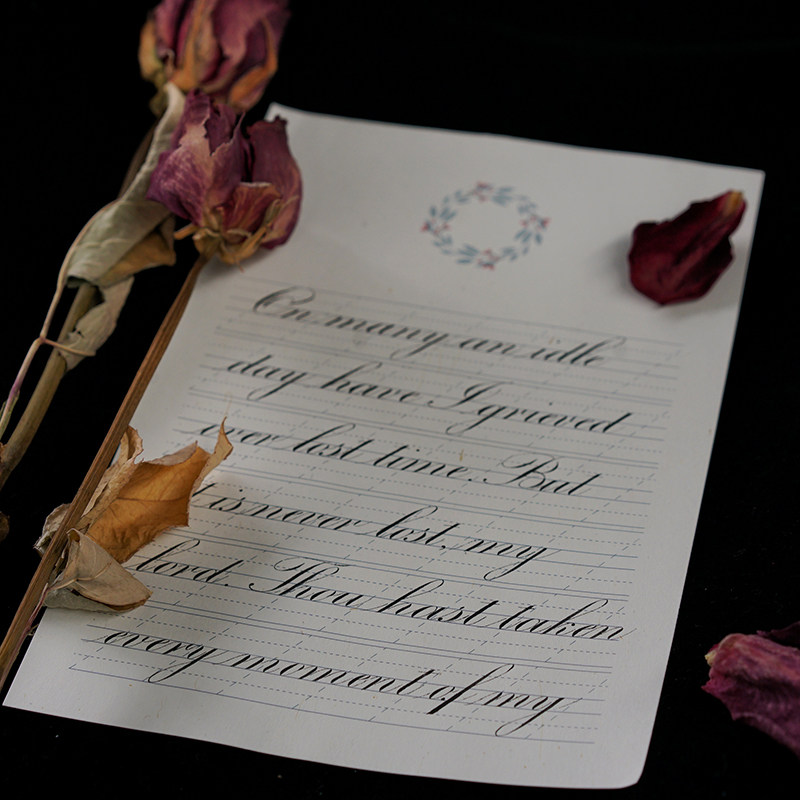 On many an idle
day have I grieved
over lost time. But
it is never lost, my
lord. Thou hast taken
every moment of my